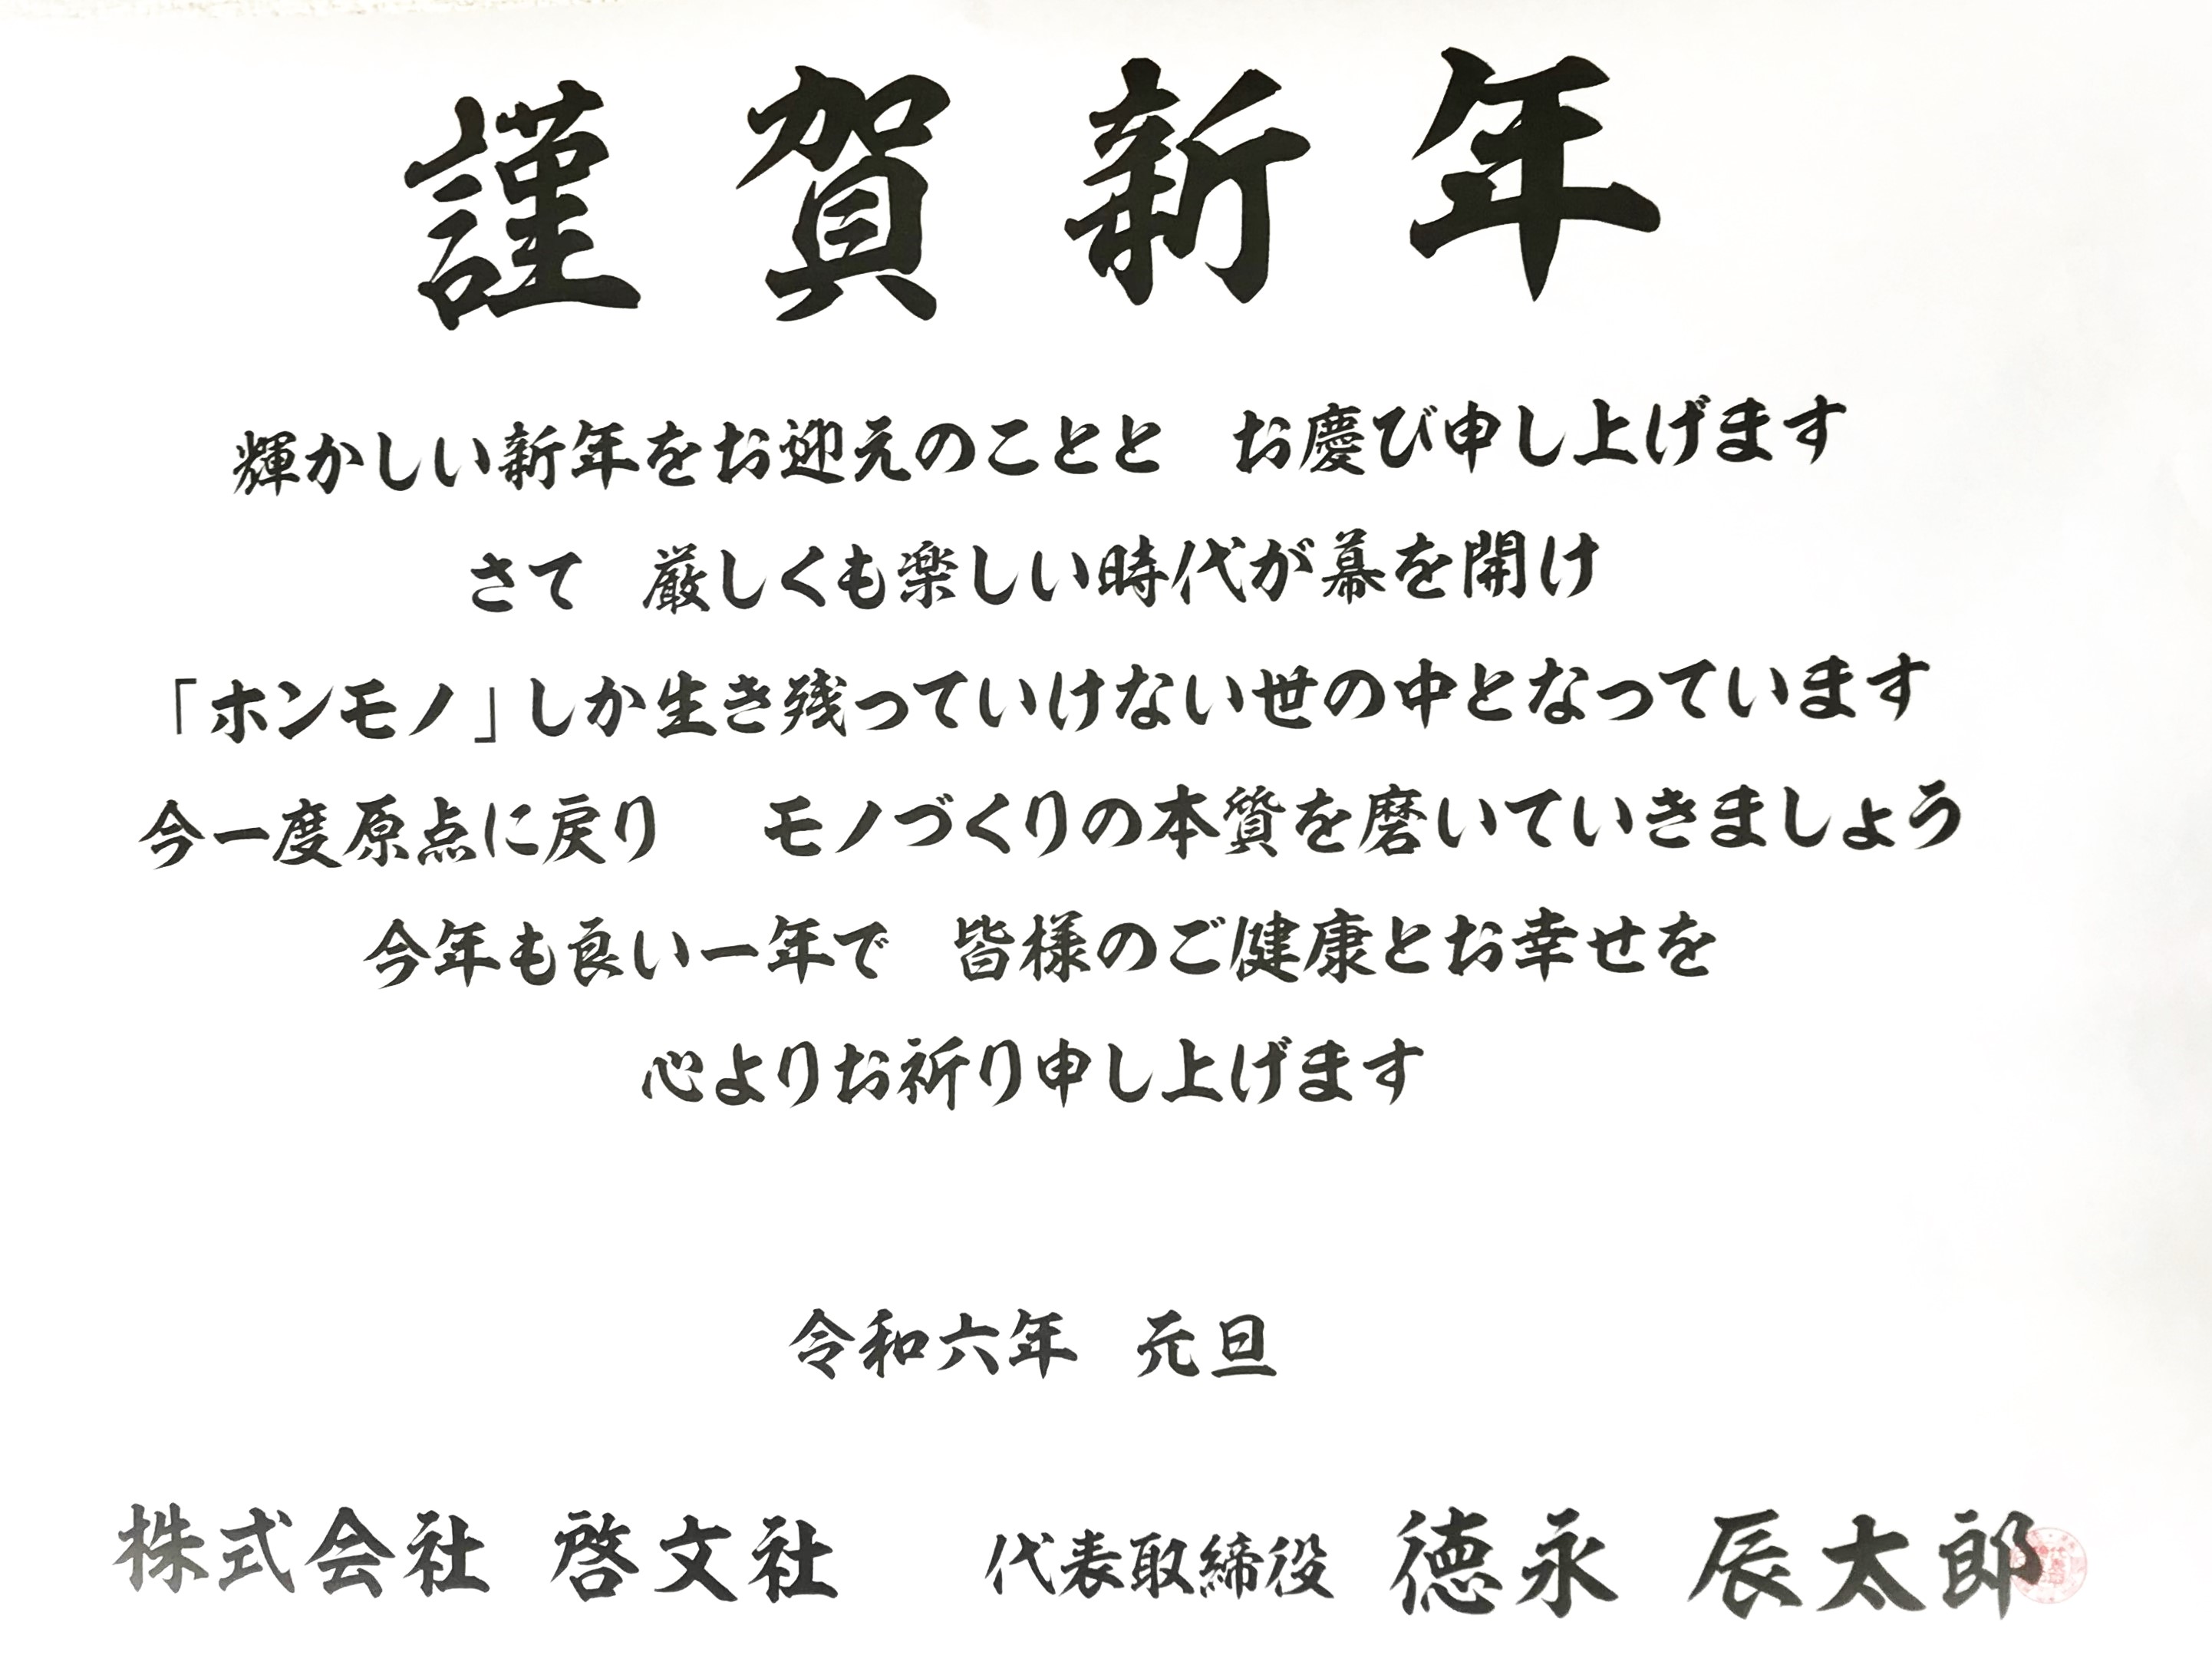 謹賀新年
輝かしい新年をお迎えのことと　お慶び申し上げます
さて　厳しくも楽しい時代が幕を開け
「ホンモノ」しか生き残っていけない世の中となっています
今一度原点に戻り　モノづくりの本質を磨いていきましょう
今年も良い一年で　皆様のご健康とお幸せを
心よりお祈り申し上げます
令和六年　元旦
株式会社　啓文社　代表取締役　徳永　辰太郎